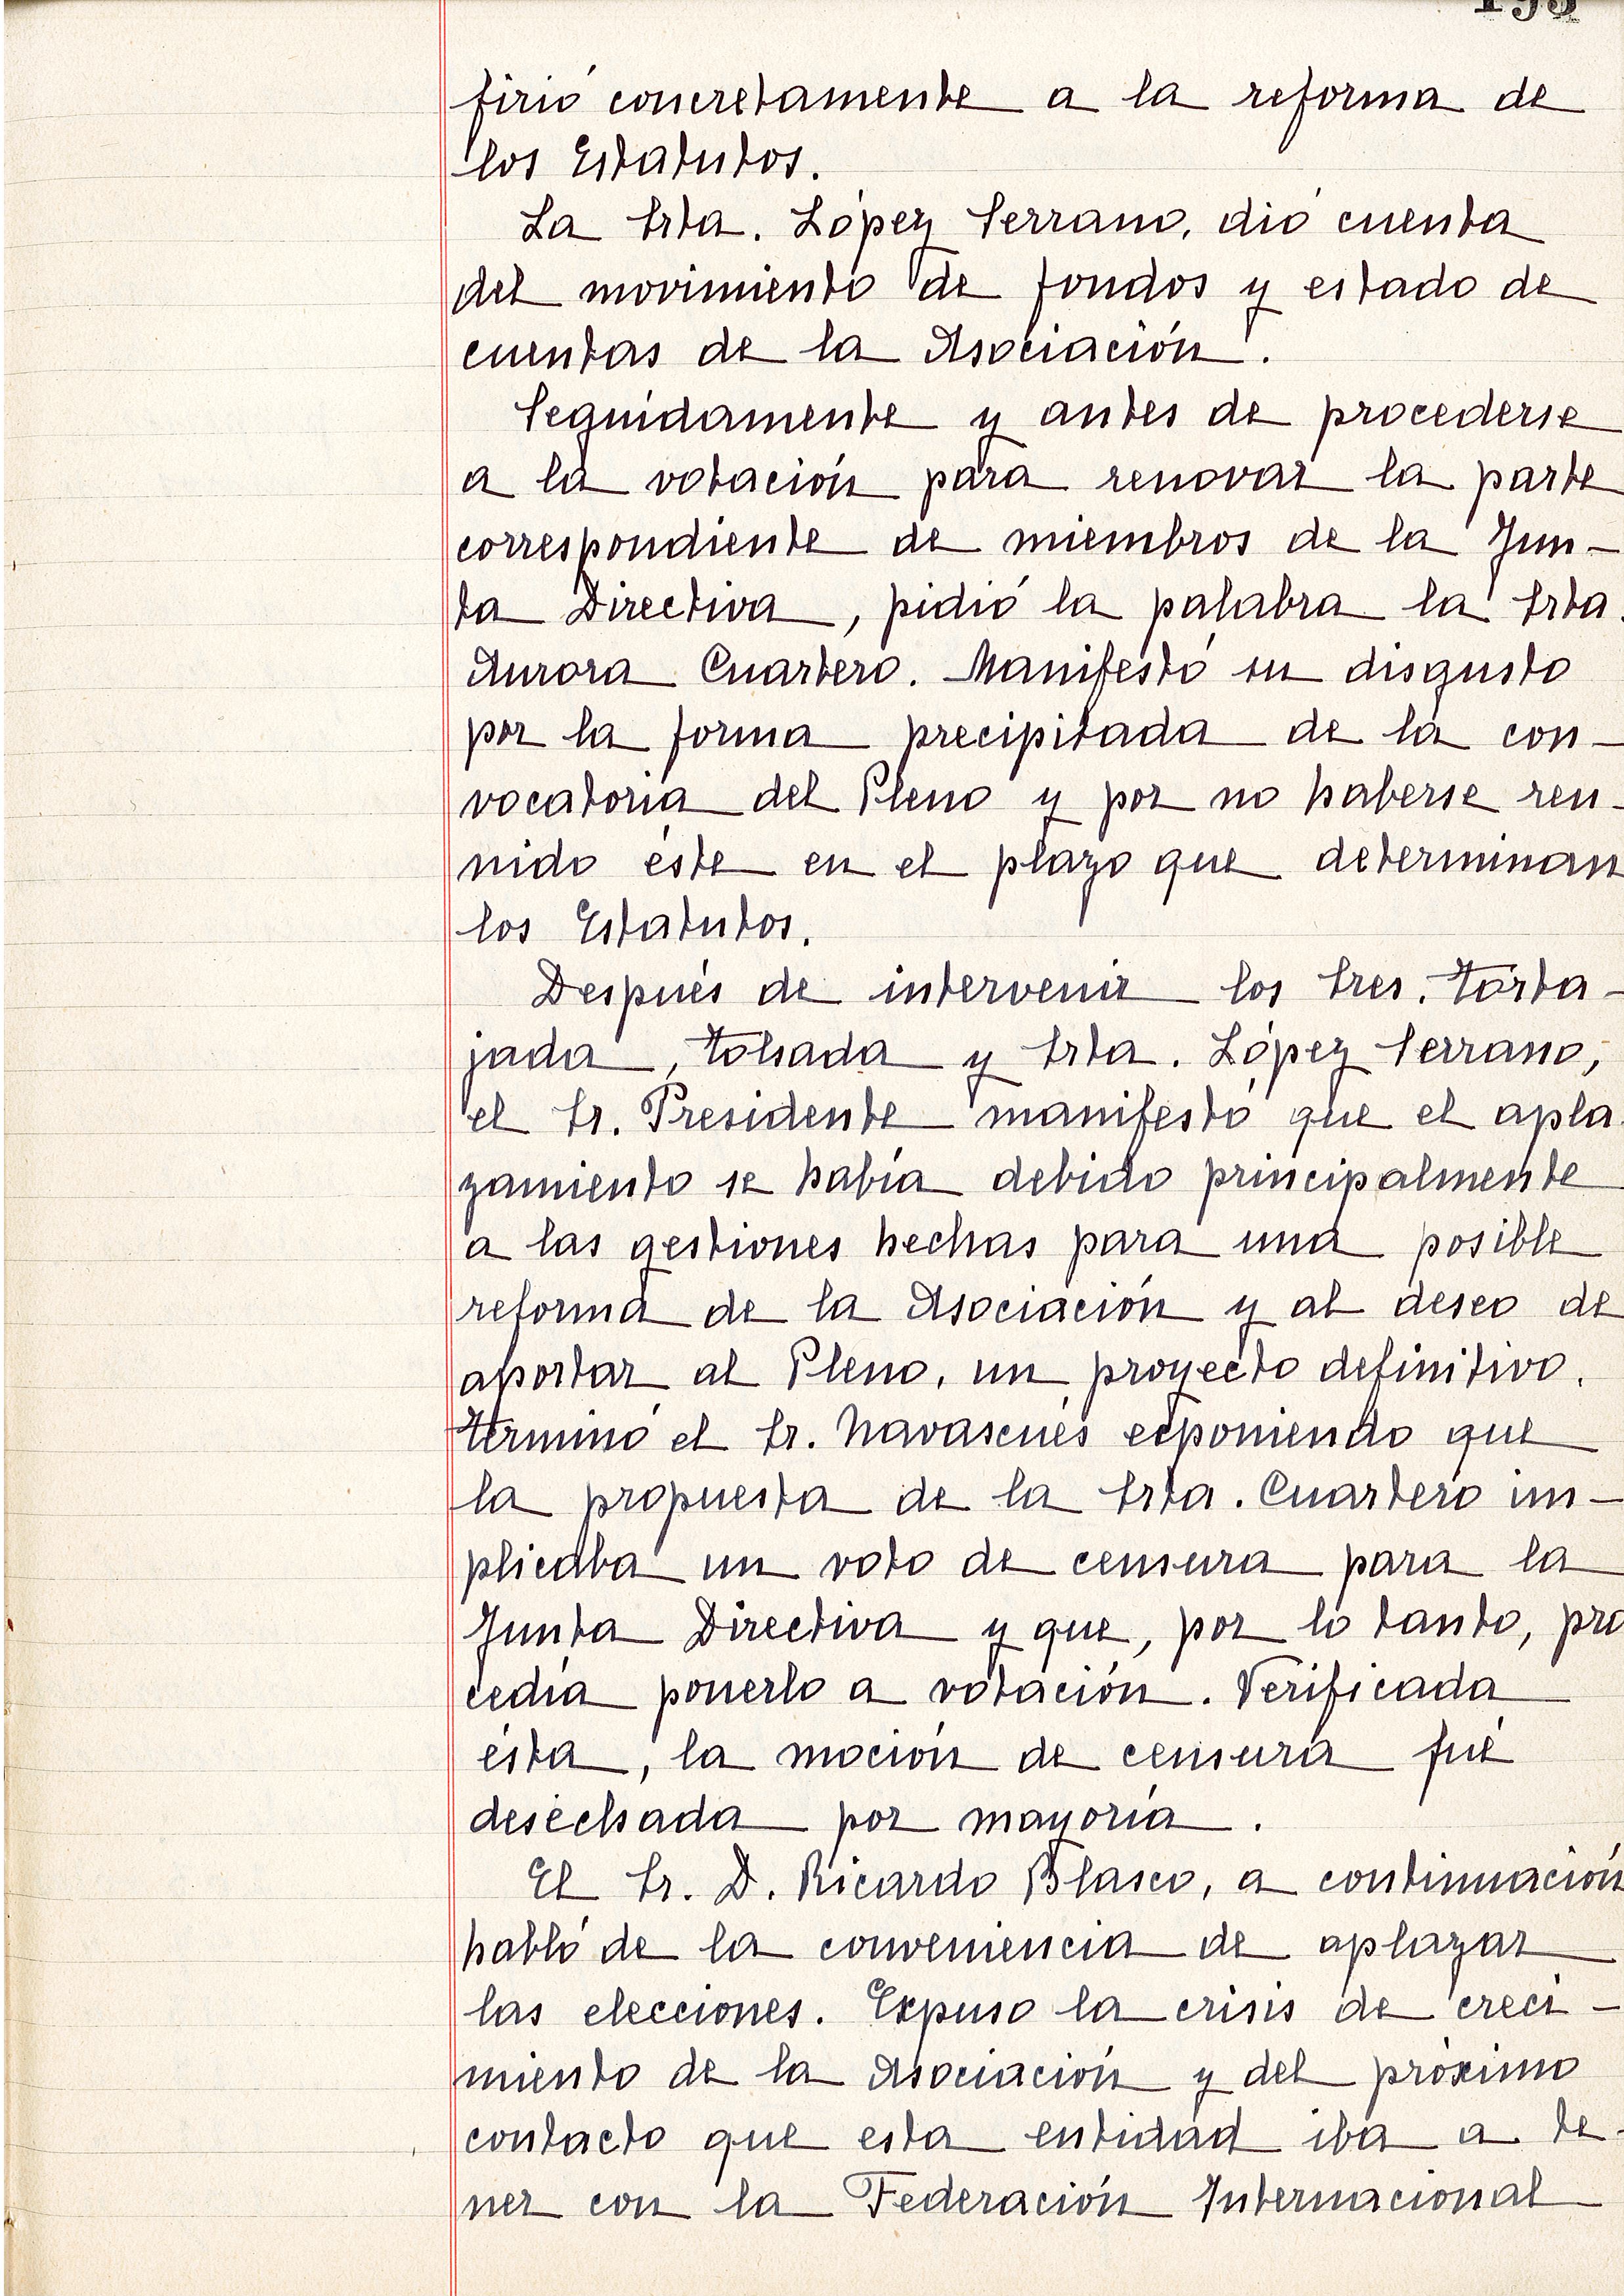 firió concretamente a la reforma de
los Estatutos.
La Srta. López Serrano, dió cuenta
del movimiento de fondos y estado de
cuentas de la Asociación.
Seguidamente y antes de procederse
a la votación para renovar la parte
correspondiente de miembros de la Jun-
ta Directiva, pidió la palabra la Srta.
Aurora Cuartero. Manifestó su disgusto
por la forma precipitada de la con-
vocatoria del Pleno y por no haberse reu-
nido éste en el plazo que determinan
los Estatutos.
Después de intervenir los Sres. Torta-
jada, Tolsada y Srta. López Serrano,
el Sr. Presidente manifestó que el apla-
zamiento se había debido principalmente
a las gestiones hechas para una posible
reforma de la Asociación y al deseo de
aportar al Pleno, un proyecto definitivo.
Terminó el Sr. Navascués exponiendo que
la propuesta de la Srta. Cuartero im-
plicaba un voto de censura para la
Junta Directiva y que, por lo tanto, pro
cedía ponerlo a votación. Verificada
ésta, la moción de censura fué
desechada por mayoría.
El Sr. D. Ricardo Blasco, a continuación
habló de la conveniencia de aplazar
las elecciones. Expuso la crisis de creci-
miento de la Asociación y del próximo
contacto que esta entidad iba a te-
ner con la Federación Internacional